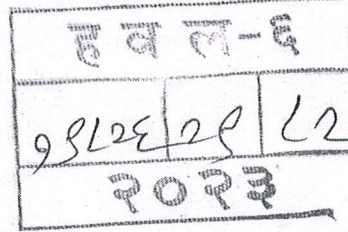 ह व ल - ६
१९८२६ २९ ८२
२०२३